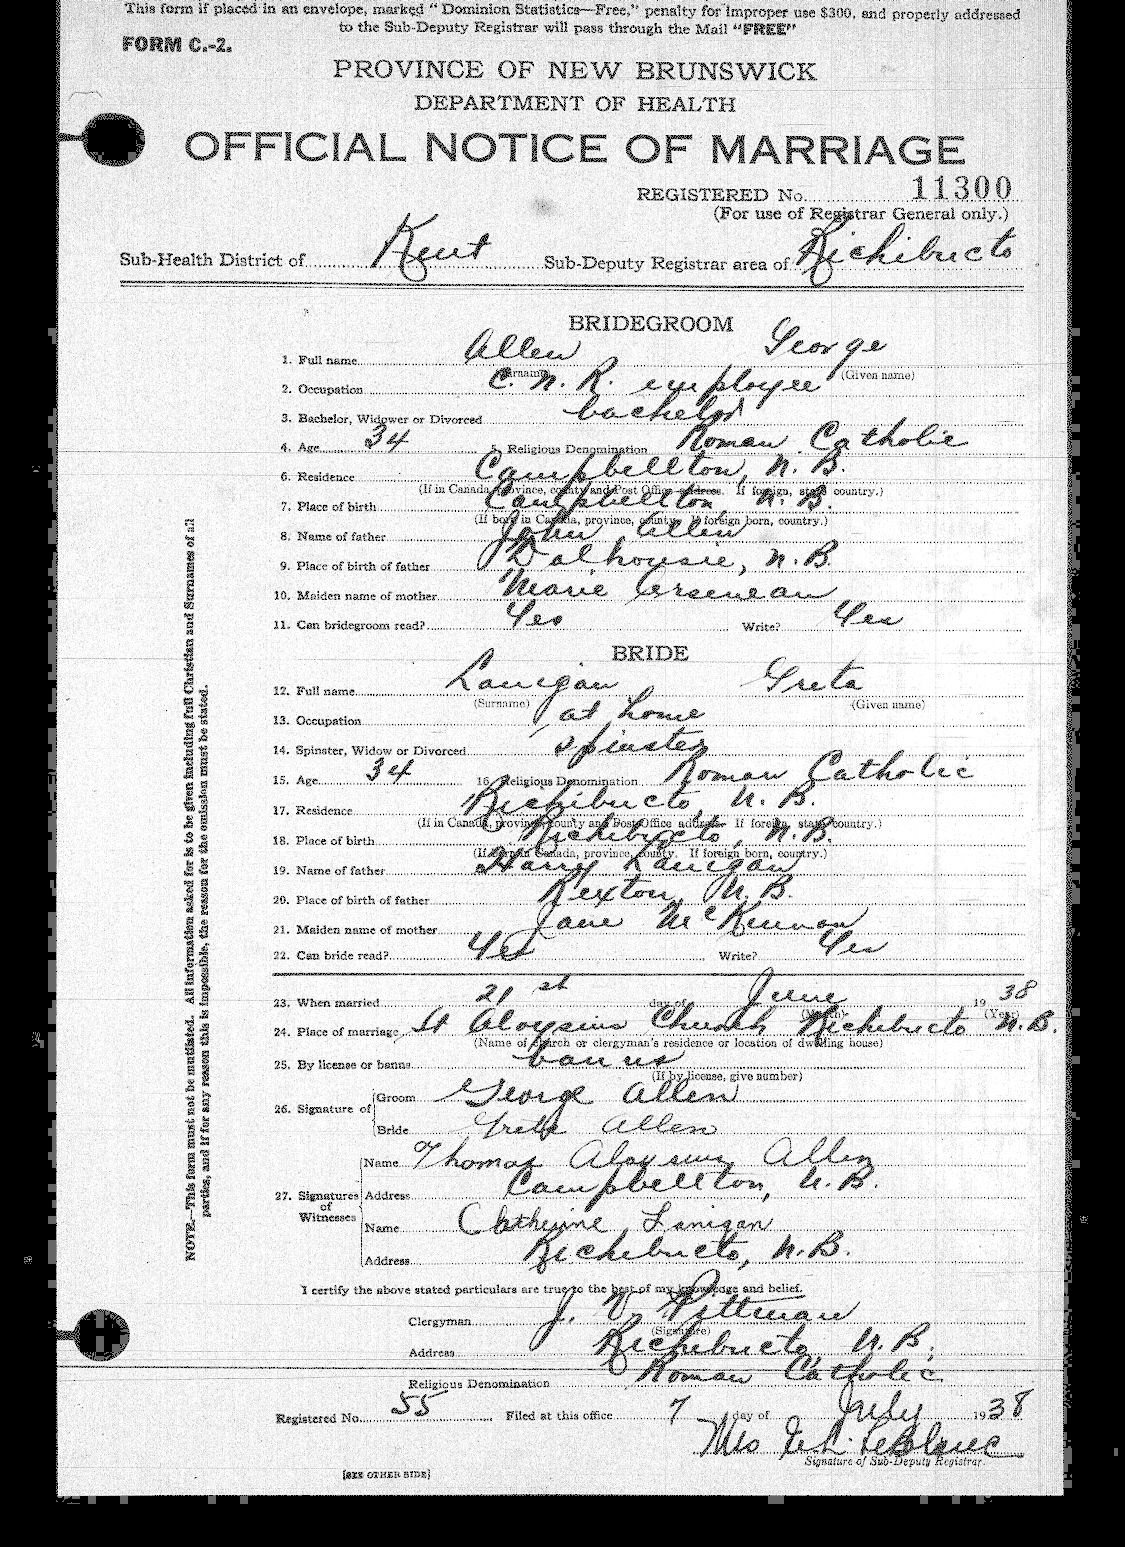 This form if placed in an envelope, marked "Dominion Statistics—Free," penalty for improper use $300, and properly addressed
to the Sub-Deputy Registrar will pass through the Mail "FREE"
FORM C.-2.
PROVINCE OF NEW BRUNSWICK
DEPARTMENT OF HEALTH
OFFICIAL NOTICE OF MARRIAGE
REGISTERED No. 11300
(For use of Registrar General only.)
Sub-Health District of Kent Sub-Deputy Registrar area of Richibucto
BRIDEGROOM
1. Full name Allen George
(Surname) (Given name)
2. Occupation C.N.R. employee
3. Bachelor, Widower or Divorced bachelor
4. Age 34 5. Religious Denomination Roman Catholic
6. Residence Campbellton, N.B.
(If in Canada, province, county and Post Office address. If foreign, state country.)
7. Place of birth Campbellton, N.B.
(If born in Canada, province, county. If foreign born, country.)
8. Name of father John Allen
9. Place of birth of father Dalhousie, N.B.
10. Maiden name of mother Marie Arseneau
11. Can bridegroom read? Yes Write? Yes
BRIDE
12. Full name Lanigan Greta
(Surname) (Given name)
13. Occupation at home
14. Spinster, Widow or Divorced spinster
15. Age 34 16. Religious Denomination Roman Catholic
17. Residence Richibucto, N.B.
(If in Canada, province, county and Post Office address. If foreign, state country.)
18. Place of birth Richibucto, N.B.
(If born in Canada, province, county. If foreign born, country.)
19. Name of father Harry Lanigan
20. Place of birth of father Rexton, N.B.
21. Maiden name of mother Jane McKinnon
22. Can bride read? Yes Write? Yes
23. When married 21st day of June 1938
(Month) (Year)
24. Place of marriage St Aloysius Church Richibucto N.B.
(Name of church or clergyman's residence or location of dwelling house)
25. By license or banns banns
(If by license, give number)
26. Signature of Groom George Allen
Bride Greta Allen
27. Signatures of Witnesses Name Thomas Aloysius Allen
Address Campbellton, N.B.
Name Catherine Lanigan
Address Richibucto, N.B.
I certify the above stated particulars are true to the best of my knowledge and belief.
Clergyman J. V. Pittman
(Signature)
Address Richibucto N.B.
Religious Denomination Roman Catholic
Registered No. 55 Filed at this office 7 day of July 1938
Mrs LeBlanc
Signature of Sub-Deputy Registrar.
[SEE OTHER SIDE]
NOTE.—This form must not be mutilated. All information asked for is to be given including full Christian and Surnames of all
parties, and if for any reason this is impossible, the reason for the omission must be stated.